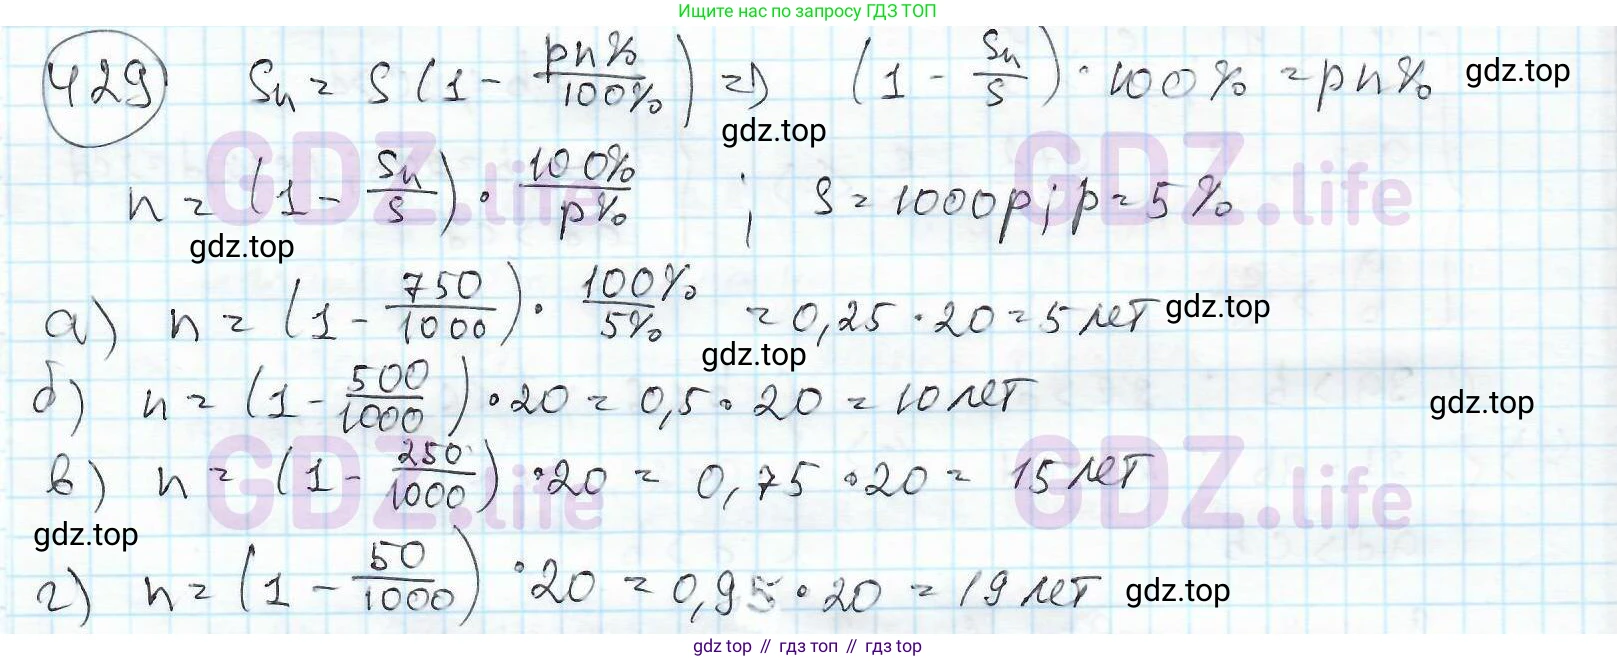 Ищите нас по запросу ГДЗ ТОП
429 Sn = S (1 - pn%/100%) => (1 - Sn/S) · 100% = pn% gdz.top
gdz.top
GDZ.life GDZ.life
n = (1 - Sn/S) · 100%/p% ; S = 1000р; p = 5%
gdz.top
а) n = (1 - 750/1000) · 100%/5% = 0,25 · 20 = 5 лет gdz.top
gdz.top
б) n = (1 - 500/1000) · 20 = 0,5 · 20 = 10 лет gdz.top
в) n = (1 - 250/1000) · 20 = 0,75 · 20 = 15 лет
GDZ.life GDZ.life
gdz.top
г) n = (1 - 50/1000) · 20 = 0,95 · 20 = 19 лет gdz.top
gdz top // гдз топ // гдз top